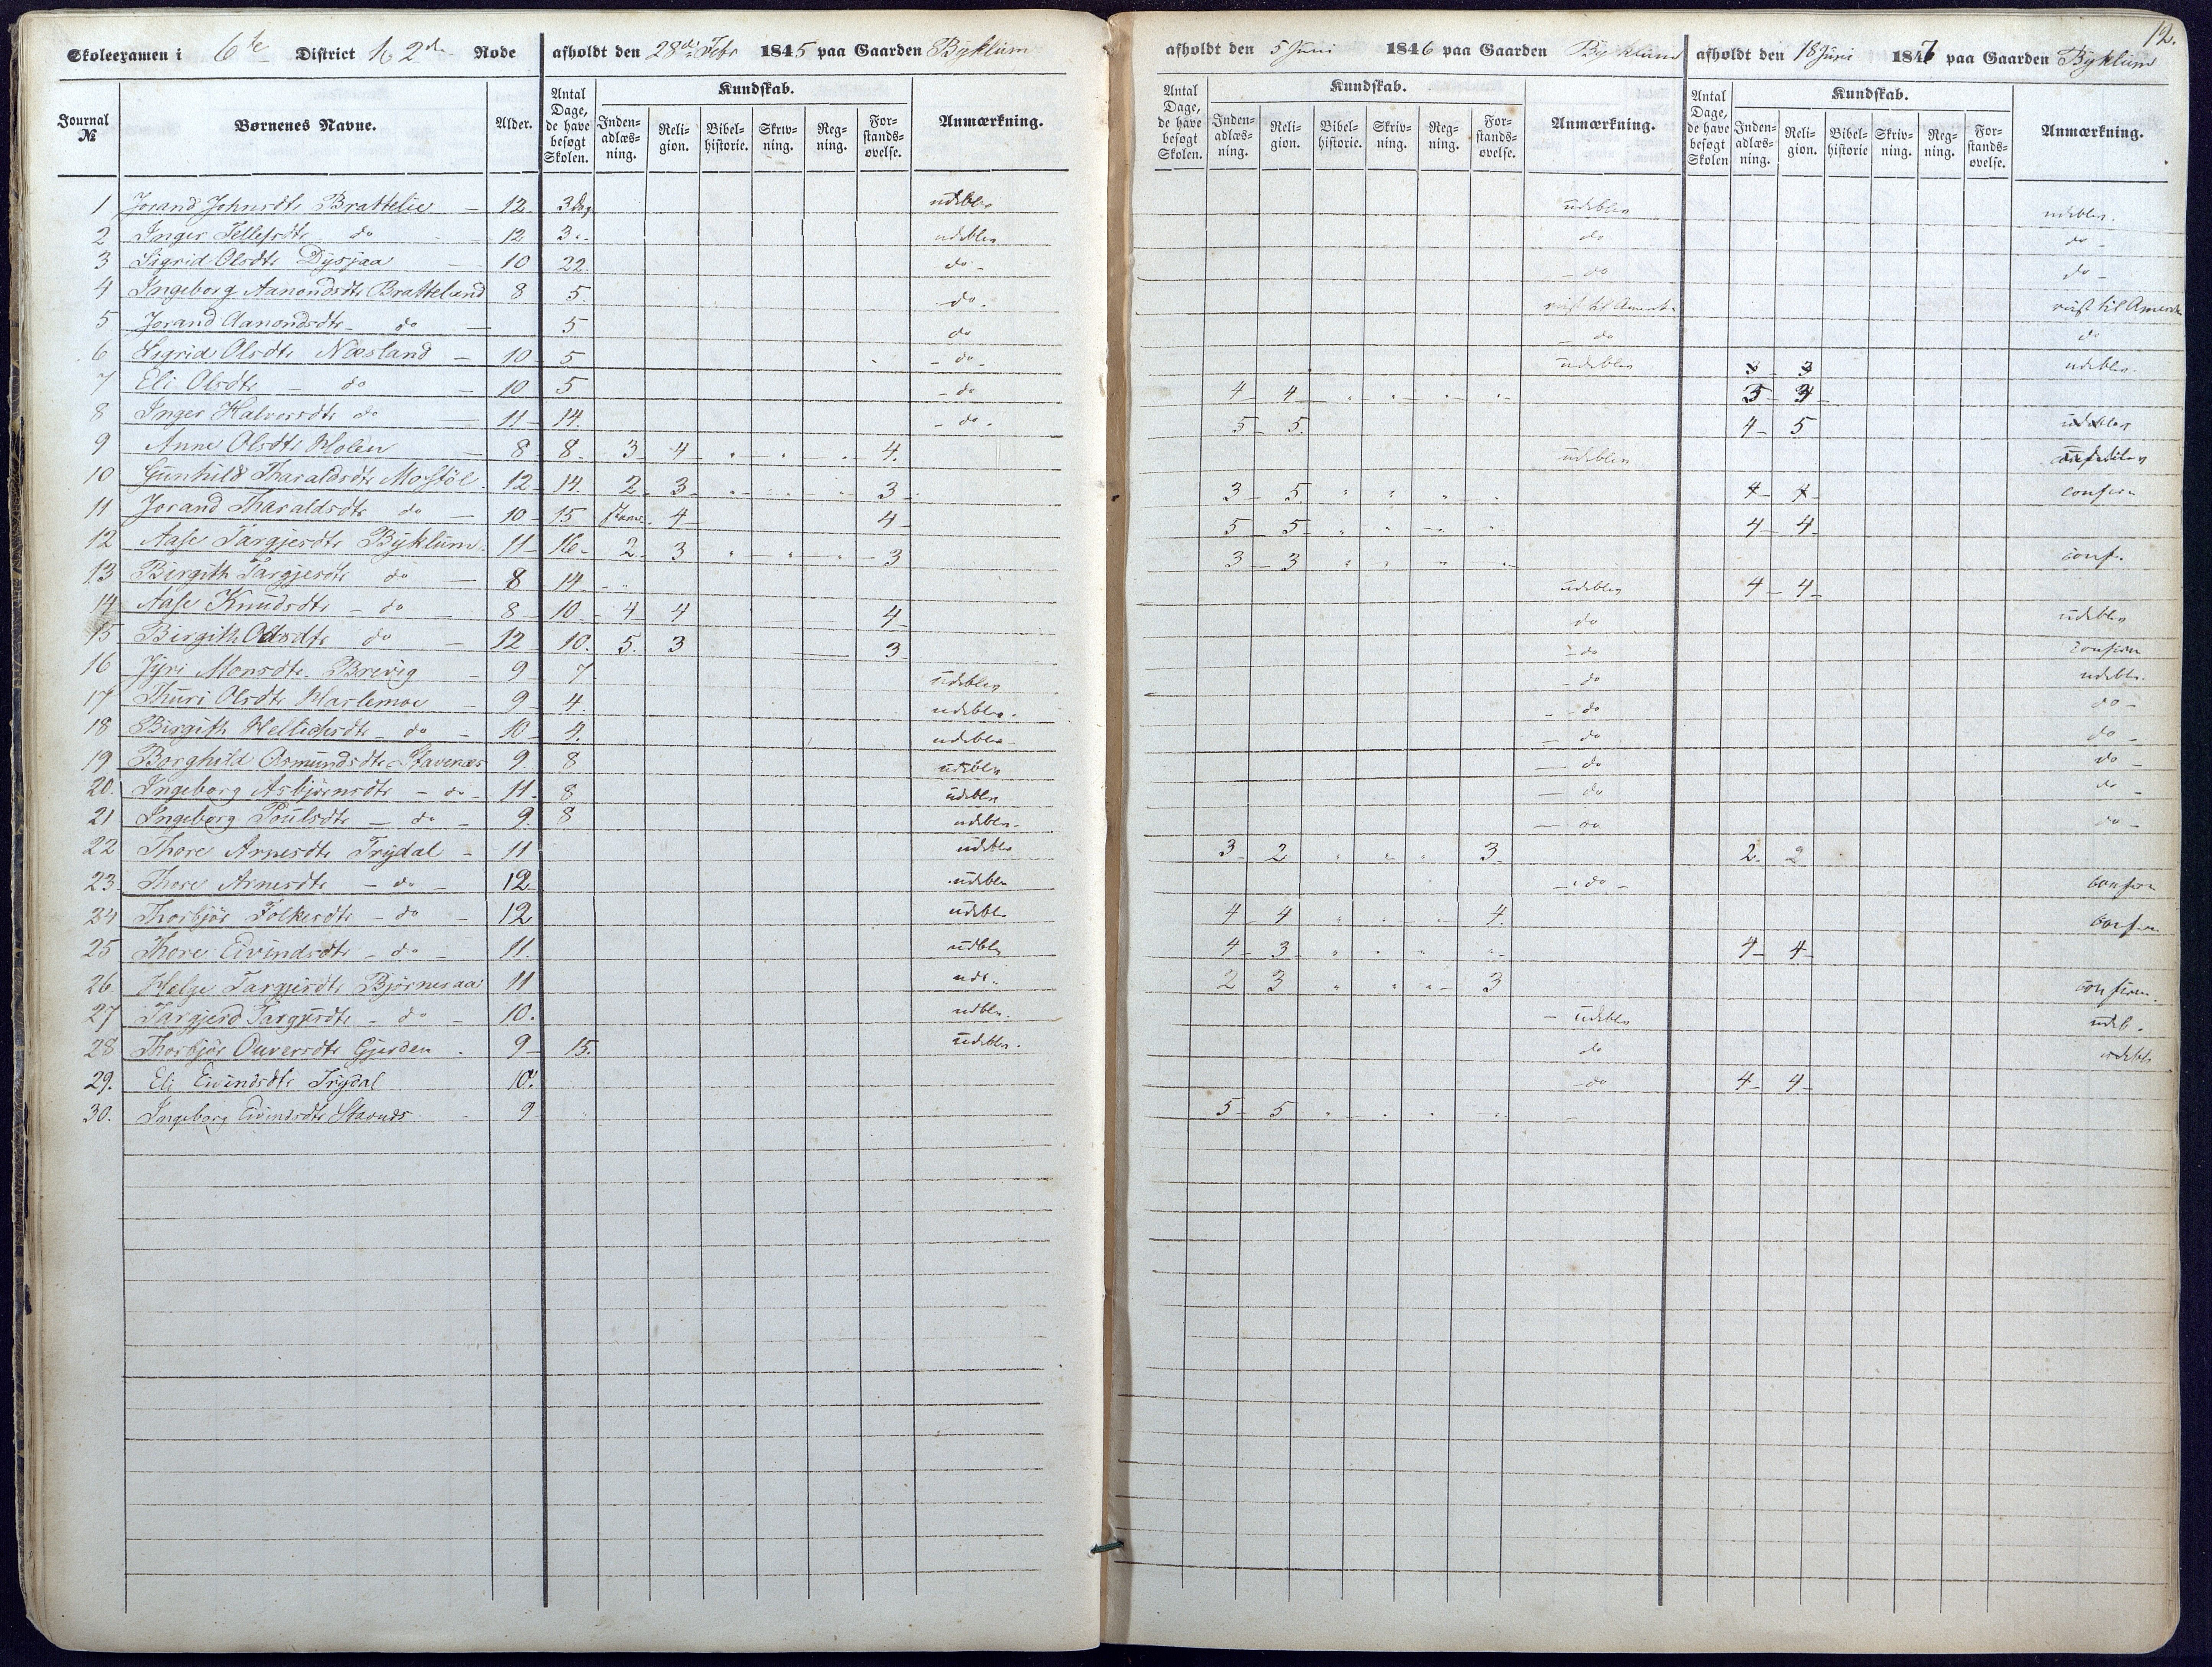 12.
Skoleexamen i 6te District 2 Rode afholdt den 28de Febr 1845 paa Gaarden Byklum afholdt den 5 Juni 1846 paa Gaarden Byklum afholdt den 18 Juni 1847 paa Gaarden Byklum
Journal № Børnenes Navne. Alder. Antal Dage, de have besøgt Skolen. Kundskab. Indenadlæsning. Religion. Bibelhistorie. Skrivning. Regning. Forstandsøvelse. Anmærkning. Antal Dage, de have besøgt Skolen. Kundskab. Indenadlæsning. Religion. Bibelhistorie. Skrivning. Regning. Forstandsøvelse. Anmærkning. Antal Dage, de have besøgt Skolen Kundskab. Indenadlæsning. Religion. Bibelhistorie Skrivning. Regning. Forstandsøvelse. Anmærkning.
1 Jorand Johnsdtr Brattelie 12 3 dag udebleven udebleven udebleven
2 Inger Tellefsdtr do 12 3 udebleven do do
3 Sigrid Olsdtr Dysjaa 10 22 do do do
4 Ingeborg Aanondsdtr Bratteland 8 5 do reist til Amerika reist til Amerika
5 Jorand Aanondsdtr do 5 do do do
6 Sigrid Olsdtr Næsland 10 5 do udebleven 3 3 udebleven
7 Eli Olsdtr do 10 5 do 4 4
8 Inger Halvorsdtr do 11 14 do 5 5 4 5
9 Anne Olsdtr Holen 8 8 3 4 4 udebleven
10 Gunhild Tharaldsdtr Mosföl 12 14 2 3 3 3 5 4 4 confirm
11 Jorand Tharaldsdtr do 10 15 4 4 5 5 4 4
12 Aase Targjersdtr Byklum 11 16 2 3 3 3 3 conf.
13 Birgith Targjersdtr do 8 14 udebleven 4 4
14 Aase Knudsdtr do 8 10 4 4 4 do udebleven
15 Birgith Olsdtr do 12 10 5 3 3 do confirm
16 Jyri Monsdtr Brevig 9 7 udebleven do udebl.
17 Thuri Olsdtr Harlemoe 9 4 udebleven do do
18 Birgith Hellichsdtr do 10 4 udebleven do do
19 Borghild Osmundsdtr Stavenæs 9 8 udebleven do do
20. Ingeborg Asbjørnsdtr do 11 8 udebleven do do
21 Ingeborg Poulsdtr do 9 8 udebleven do do
22 Thore Arnesdtr Trydal 11 udebl. 3 2 3 2 2
23 Thore Arnesdtr do 12 udebl. do confirm
24 Thorbjör Folkersdtr do 12 udebl. 4 4 4 confirm
25 Thore Eivindsdtr do 11 udebl. 4 3 4 4
26 Helge Targjersdtr Bjørneraa 11 ude. 2 3 3 confirm.
27 Targjerd Targjersdtr do 10. udebl. udebleven udeb.
28 Thorbjör Ouversdtr Gjerden 9 15. udebl. do udebl
29. Eli Eivindsdtr Trydal 10 do 4 4
30. Ingeborg Eivindsdtr Stavnæs 9 5 5